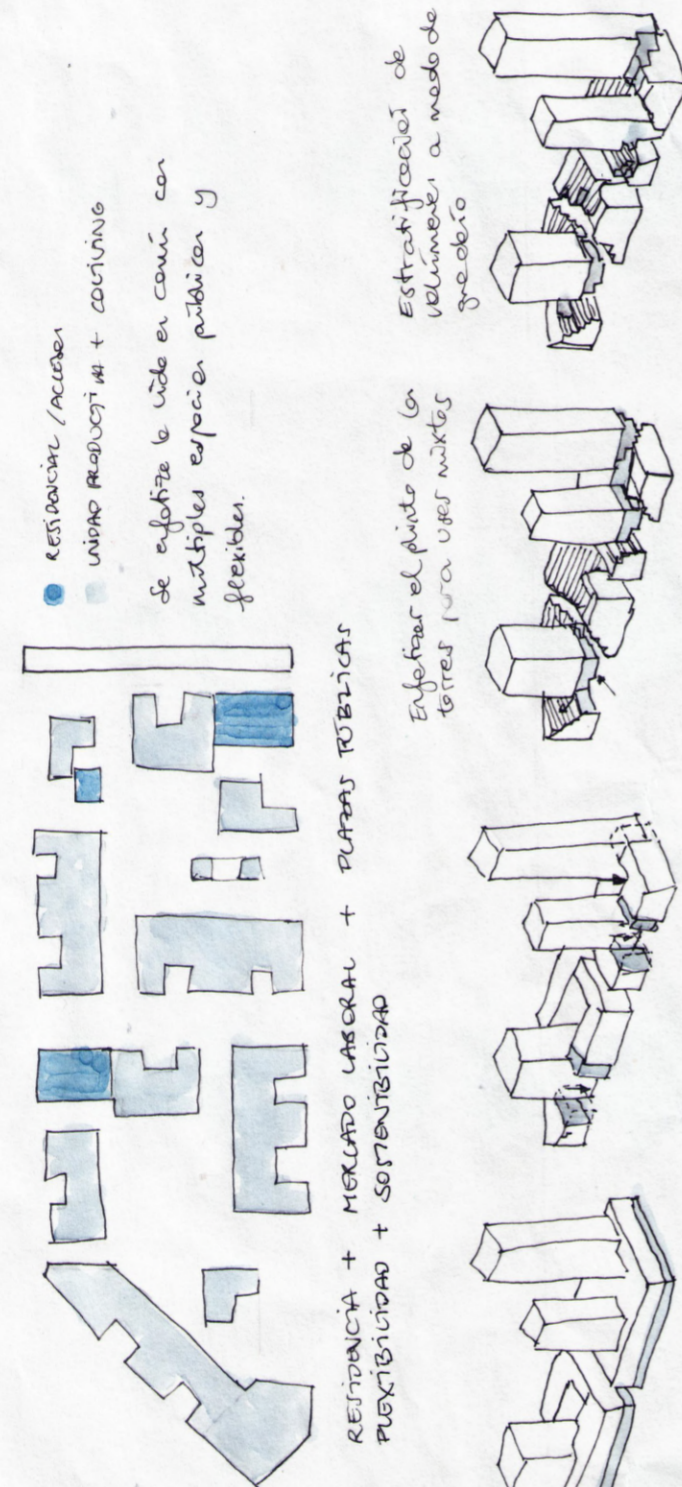 RESIDENCIAL / ACCESOS
UNIDAD PRODUCTIVA + COLIVING
Se enfatiza la vida en común con
múltiples espacios públicos y
flexibles.
RESIDENCIA + MERCADO LABORAL + PLAZAS PÚBLICAS
FLEXIBILIDAD + SOSTENIBILIDAD
Enfatizar el plinto de las
torres para usos mixtos
Estratificación de
volúmenes a modo de
graderío